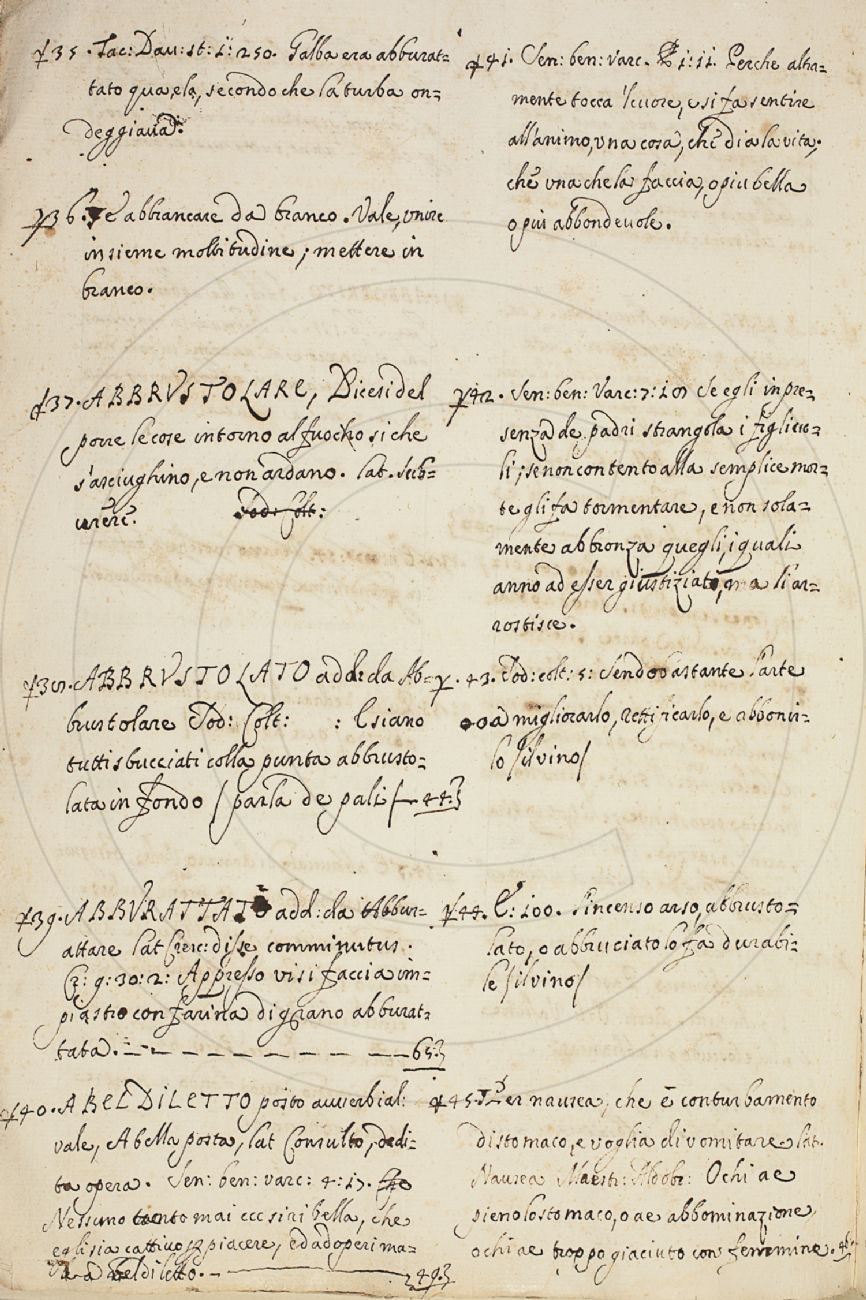 ‡35. Tac: Dav: st: 1: 250. Galba era abburat=
tato qua, e la, secondo che la turba on=
deggiava.
‡36. è abbrancare da branco. Vale, unire
insieme moltitudine; mettere in
branco.
‡37. ABBRVSTOLARE, Dicesi del
porre le cose intorno al fuocho si che
s'asciughino, e non ardano. lat. sub=
urere. Sod: Colt:
‡38. ABBRVSTOLATO add: da Ab=
brustolare Sod: Colt: : E siano
tutti sbucciati colla punta abbrusto=
lata in fondo / parla de pali / 44.3
‡39. ABBVRATTATO add: da Abbur=
attare lat Cresc: disse comminutus.
Cr: 9: 30: 2: Appresso vi si faccia im=
piastro con farina di grano abburat=
tata. — — — — — — — 65.3
‡40. A BEL DILETTO posto avverbial:
vale, A bella posta, lat Consulto, dedi=
ta opera. Sen: ben: varc: 4: 17.
Nessuno tanto mai
egli sia cattivo p piacere, ed adoperi ma=
le a beldiletto. — 249.3
‡41. Sen: ben: varc. 1: 11. Perche alta=
mente tocca 'l cuore, e si fa sentire
all'animo, una cosa, che dia la vita,
che una che la faccia, o piu bella
o piu abbondevole.
‡42. Sen: ben: Varc: 7: 19 Se egli in pre=
senza de padri strangola i figliuo=
li; se non contento alla semplice mor=
te gli fa tormentare, e non sola=
mente abbronza quegli, i quali
anno ad esser giustiziati, ma li ar=
rostisce.
‡. 43. Sod: colt: 5: Sendo bastante l'arte
a migliorarlo, rettificarlo, e abboni=
lo / silvino /
‡44. E: 100. L'incenso arso, abbrusto=
lato, o abbruciato lo fa durabi=
le / silvino /
‡45. Per nausea, che è conturbamento
di stomaco, e voglia di vomitare lat.
Nausea Maestr: Aldobr: O chi ae
pieno lo stomaco, o ae abbominazione,
o chi ae troppo giaciuto con femmine.